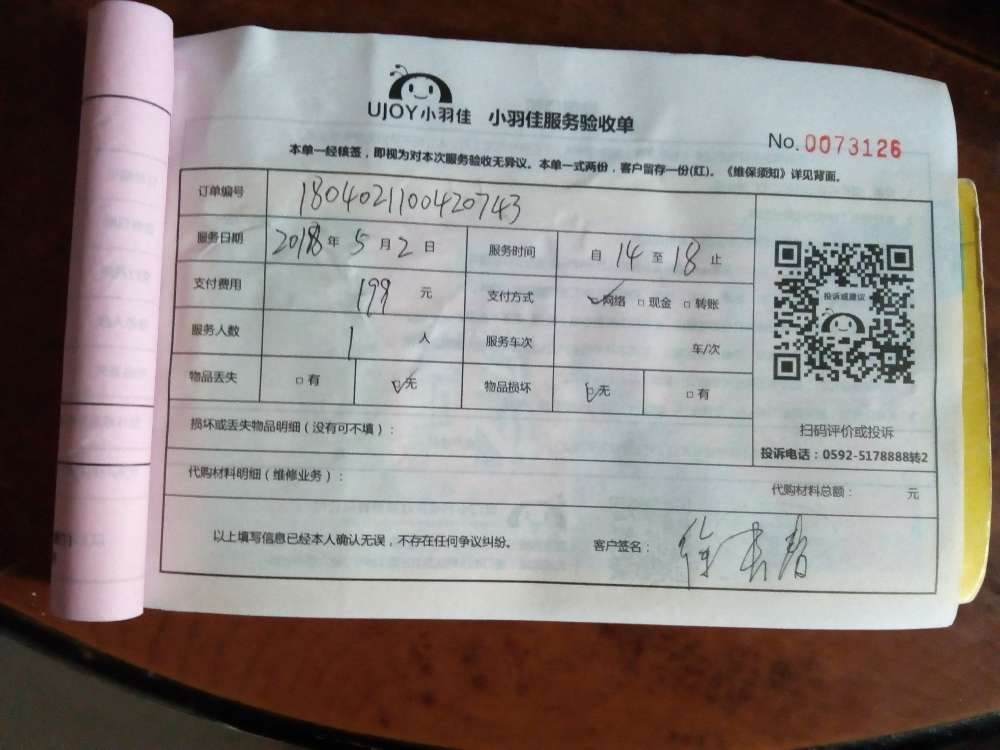 UJOY小羽佳 小羽佳服务验收单
No. 0073126
本单一经核签，即视为对本次服务验收无异议。本单一式两份，客户留存一份(红)。《维保须知》详见背面。
订单编号 180402110042074​3
服务日期 2018年5月2日 服务时间 自14至18止
支付费用 199元 支付方式 ☑网络 □现金 □转账
服务人数 1人 服务车次 车/次
物品丢失 □有 ☑无 物品损坏 ☑无 □有
投诉或建议
扫码评价或投诉
投诉电话：0592-5178888转2
损坏或丢失物品明细（没有可不填）：
代购材料明细（维修业务）：
代购材料总额： 元
以上填写信息已经本人确认无误，不存在任何争议纠纷。 客户签名：